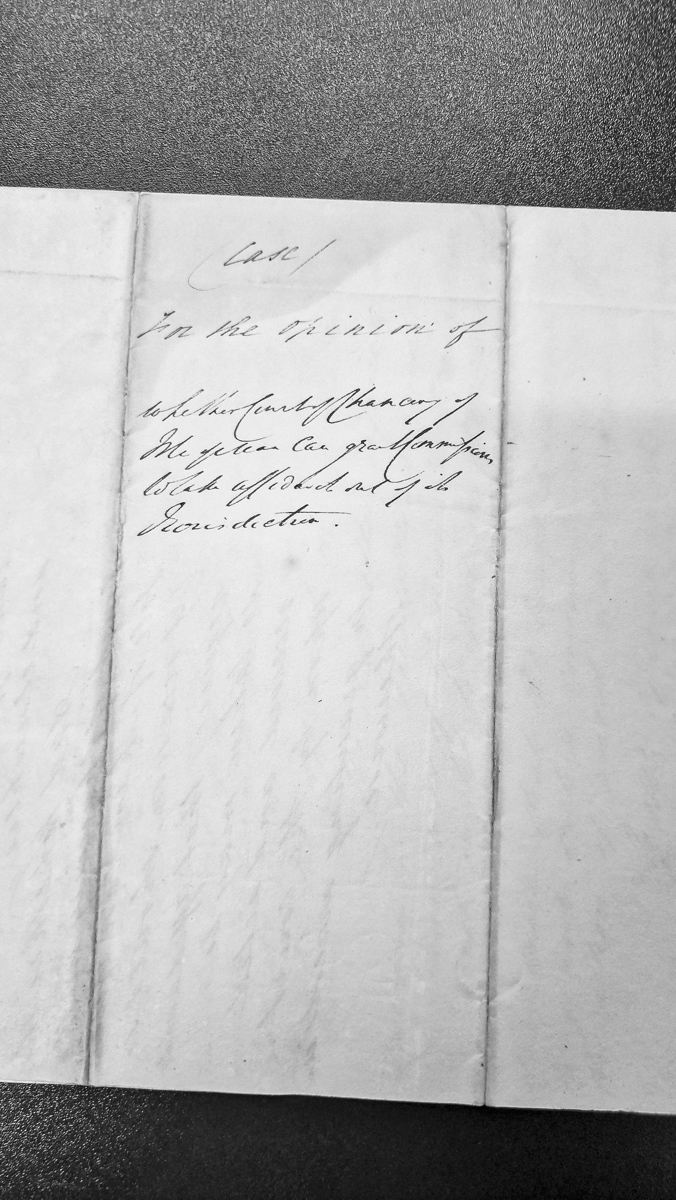 (Case)
For the opinion of
whether Court of Chancery of
Isle of Man Can grant Commissions
to take affidavit out of its
Jurisdiction.